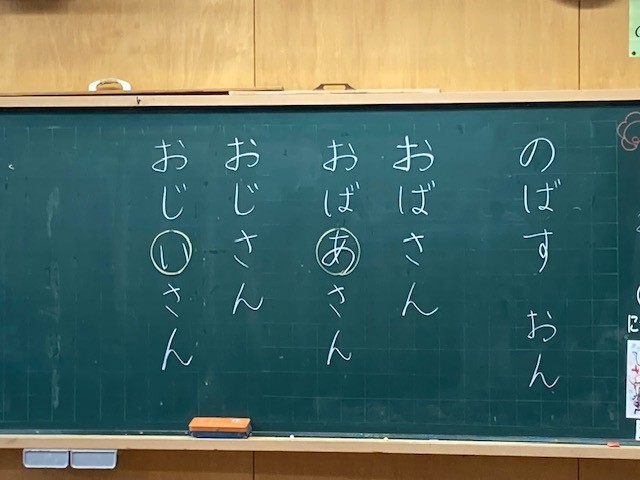 のばす おん
おばさん
おばあさん
おじさん
おじいさん